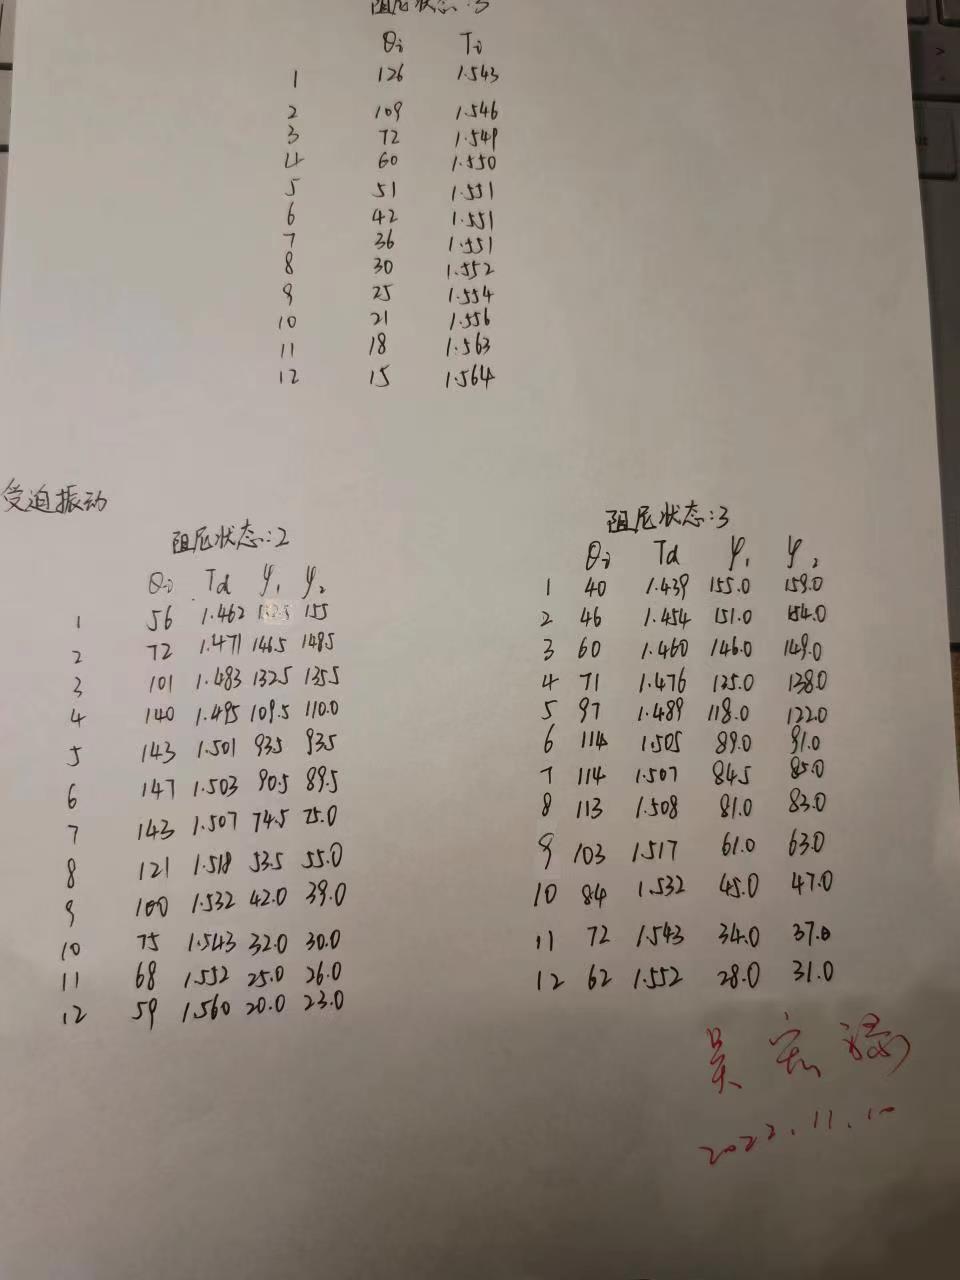 阻尼状态:3
θi Ti
1 126 1.543
2 109 1.546
3 72 1.549
4 60 1.550
5 51 1.551
6 42 1.551
7 36 1.551
8 30 1.552
9 25 1.554
10 21 1.556
11 18 1.563
12 15 1.564
受迫振动
阻尼状态:2
θi Td φ1 φ2
1 56 1.462 155
2 72 1.471 146.5 148.5
3 101 1.483 132.5 135.5
4 140 1.495 109.5 110.0
5 143 1.501 93.5 93.5
6 147 1.503 90.5 89.5
7 143 1.507 74.5 75.0
8 121 1.518 53.5 55.0
9 100 1.532 42.0 39.0
10 75 1.543 32.0 30.0
11 68 1.552 25.0 26.0
12 59 1.560 20.0 23.0
阻尼状态:3
θi Td φ1 φ2
1 40 1.439 155.0 159.0
2 46 1.454 151.0 154.0
3 60 1.460 146.0 149.0
4 71 1.476 135.0 138.0
5 97 1.489 118.0 122.0
6 114 1.505 89.0 91.0
7 114 1.507 84.5 85.0
8 113 1.508 81.0 83.0
9 103 1.517 61.0 63.0
10 84 1.532 45.0 47.0
11 72 1.543 34.0 37.0
12 62 1.552 28.0 31.0
2022.11.10